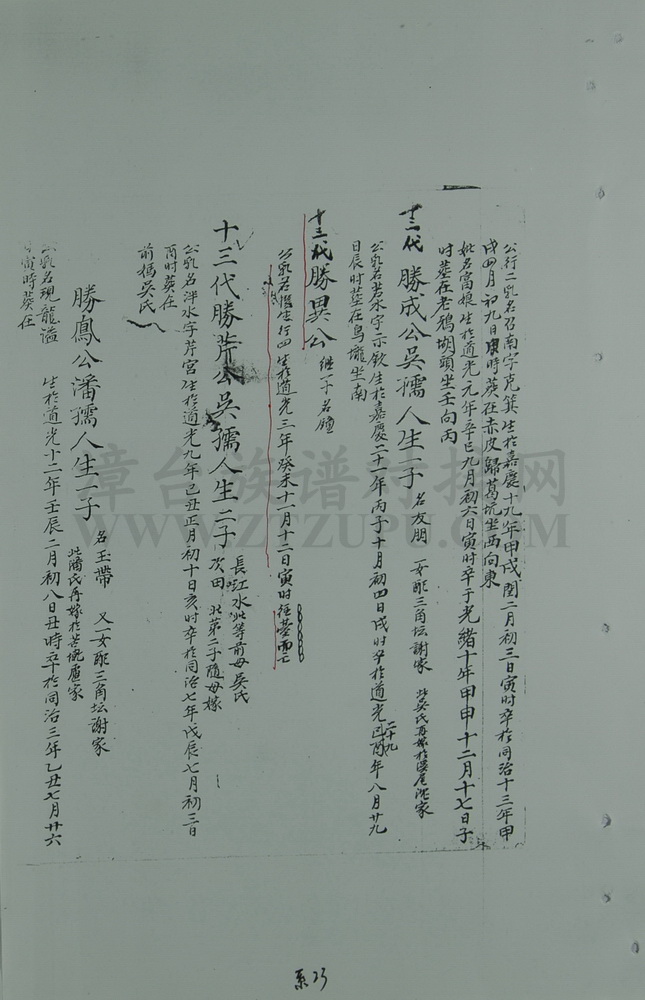 公行二乳名召南字克箕生於嘉慶十九年甲戌閏二月初三日寅时卒於同治十三年甲
戌四月初九日時葵在赤皮歸葛坑坐西向東
妣名富娘生於道光元年辛巳九月初六日寅时卒于光緒十年甲申十二月十七日子
时葬在老鴉胡頭坐壬向丙
十三代 勝成公吳孺人生一子 名友朋 一女酏三角坛謝家 此吳氏再嫁於沈家
公乳名水字亦欽生於嘉慶二十一年丙子十月初四日戌时卒於道光二十九酉年八月廿九
日辰时葬在烏壠坐南
十三代勝異公 継一子名
公乳名生行四生於道光三年癸未十一月十二日寅时
十三代勝芹公吳孺人生二子 長江水此等前母吳氏 次田 此第二子隨母嫁
公乳名泮水字芹宮生於道光九年己丑正月初十日亥时卒於同治七年戊辰七月初三日
酉时葵在
前媽吳氏
勝鳳公潘孺人生一子 名玉帶 又一女酏三角坛謝家 此潘氏再嫁於盧家
乳名現龍溢 生於道光十二年壬辰二月初八日丑時卒於同治三年乙丑七月廿六
寅時葵在
系23
章台族谱寻报网
WWW.ZTZUPU.COM